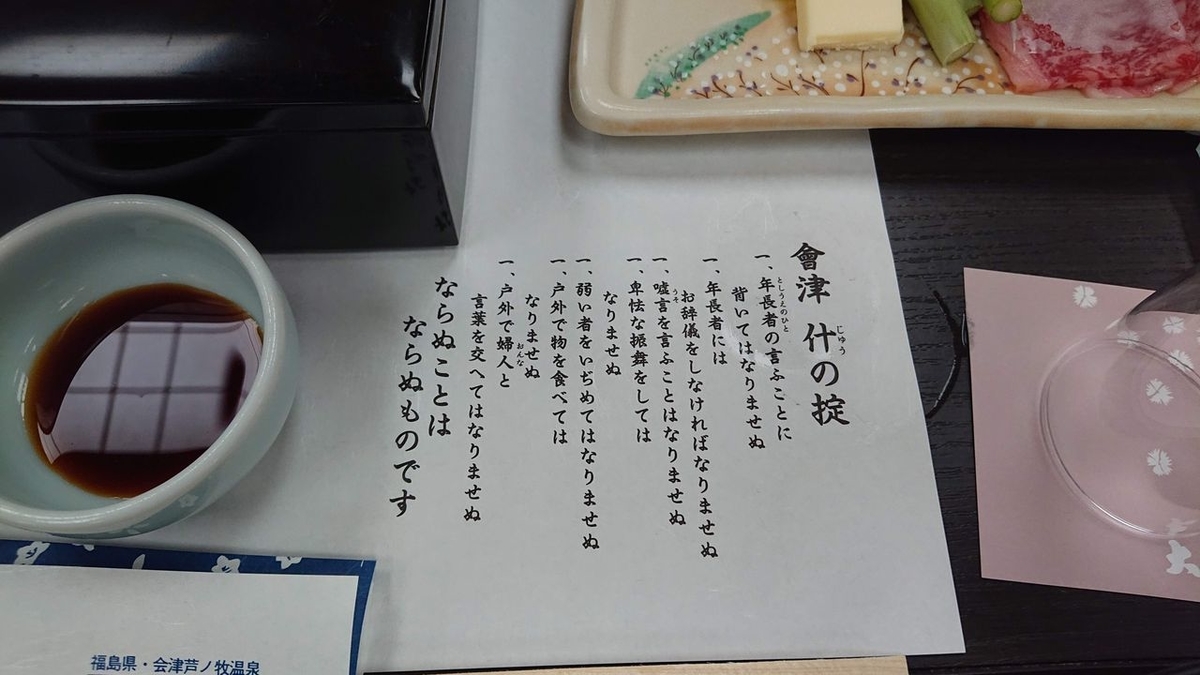 會津 什の掟
じゅう
一、年長者の言ふことに
としうえのひと
背いてはなりませぬ
一、年長者には
お辞儀をしなければなりませぬ
一、嘘言を言ふことはなりませぬ
うそ
一、卑怯な振舞をしては
なりませぬ
一、弱い者をいぢめてはなりませぬ
一、戸外で物を食べては
なりませぬ
一、戸外で婦人と
おんな
言葉を交へてはなりませぬ
ならぬことは
ならぬものです
福島県・会津芦ノ牧温泉
大